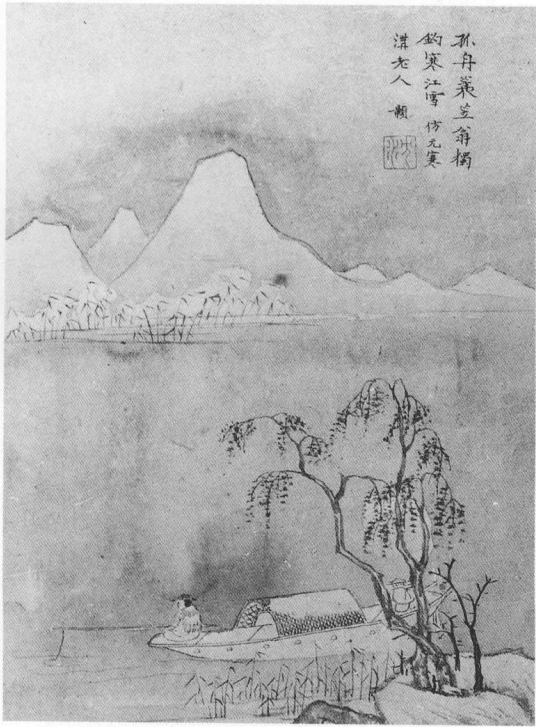 孤舟蓑笠翁獨
釣寒江雪 仿元寒
溝老人 顥